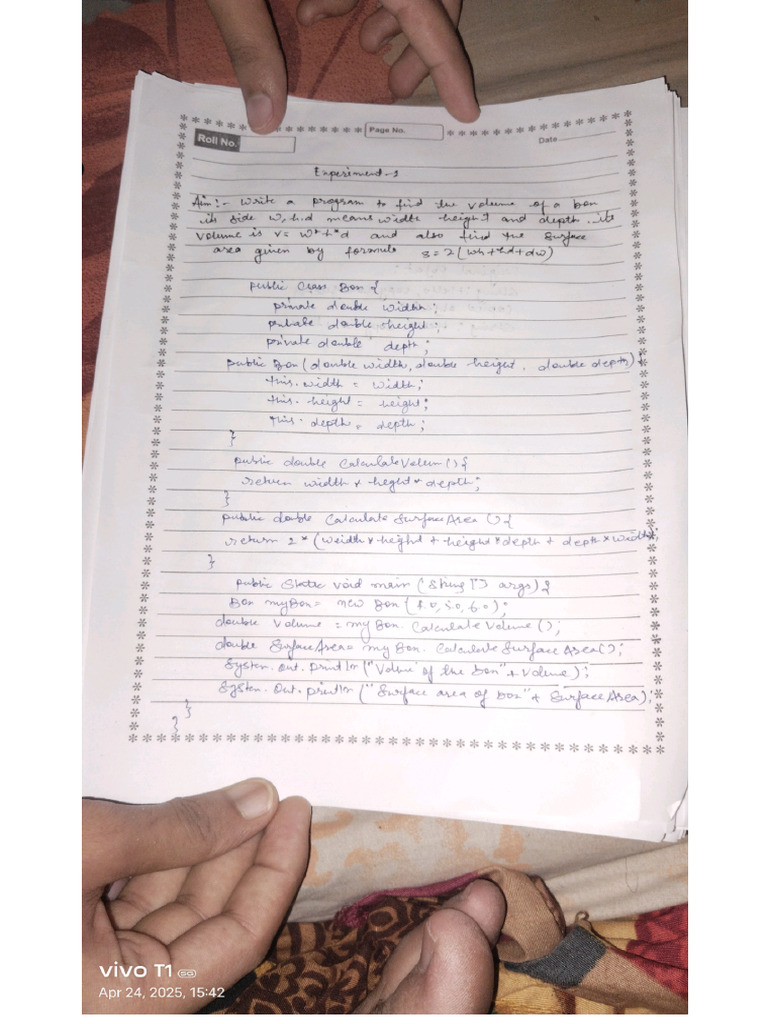 Roll No.
Page No.
Date
Experiment-1
Aim:- Write a program to find the volume of a box
its side w,h,d means width height and depth its
volume is v= w*h*d and also find the surface
area given by formula s=2(wh+hd+dw)
public class Box {
private double width;
private double height;
private double depth;
public Box(double width, double height, double depth){
this.width = width;
this.height = height;
this.depth = depth;
}
public double CalculateVolum(){
return width * heght * depth;
}
public double Calculate SurfaceArea(){
return 2*(weidth*height + height*depth + depth*width);
}
public Static void main (String[] args){
Box myBox= new Box(4.0,5.0,6.0);
double Volume = myBox.CalculateVolume();
double SurfaceArea= myBox.Calculate Surface Area();
System.out.println("Volum of the box"+Volume);
System.Out.println("Surface area of box"+SurfaceArea);
}
}
vivo T1 5G
Apr 24, 2025, 15:42